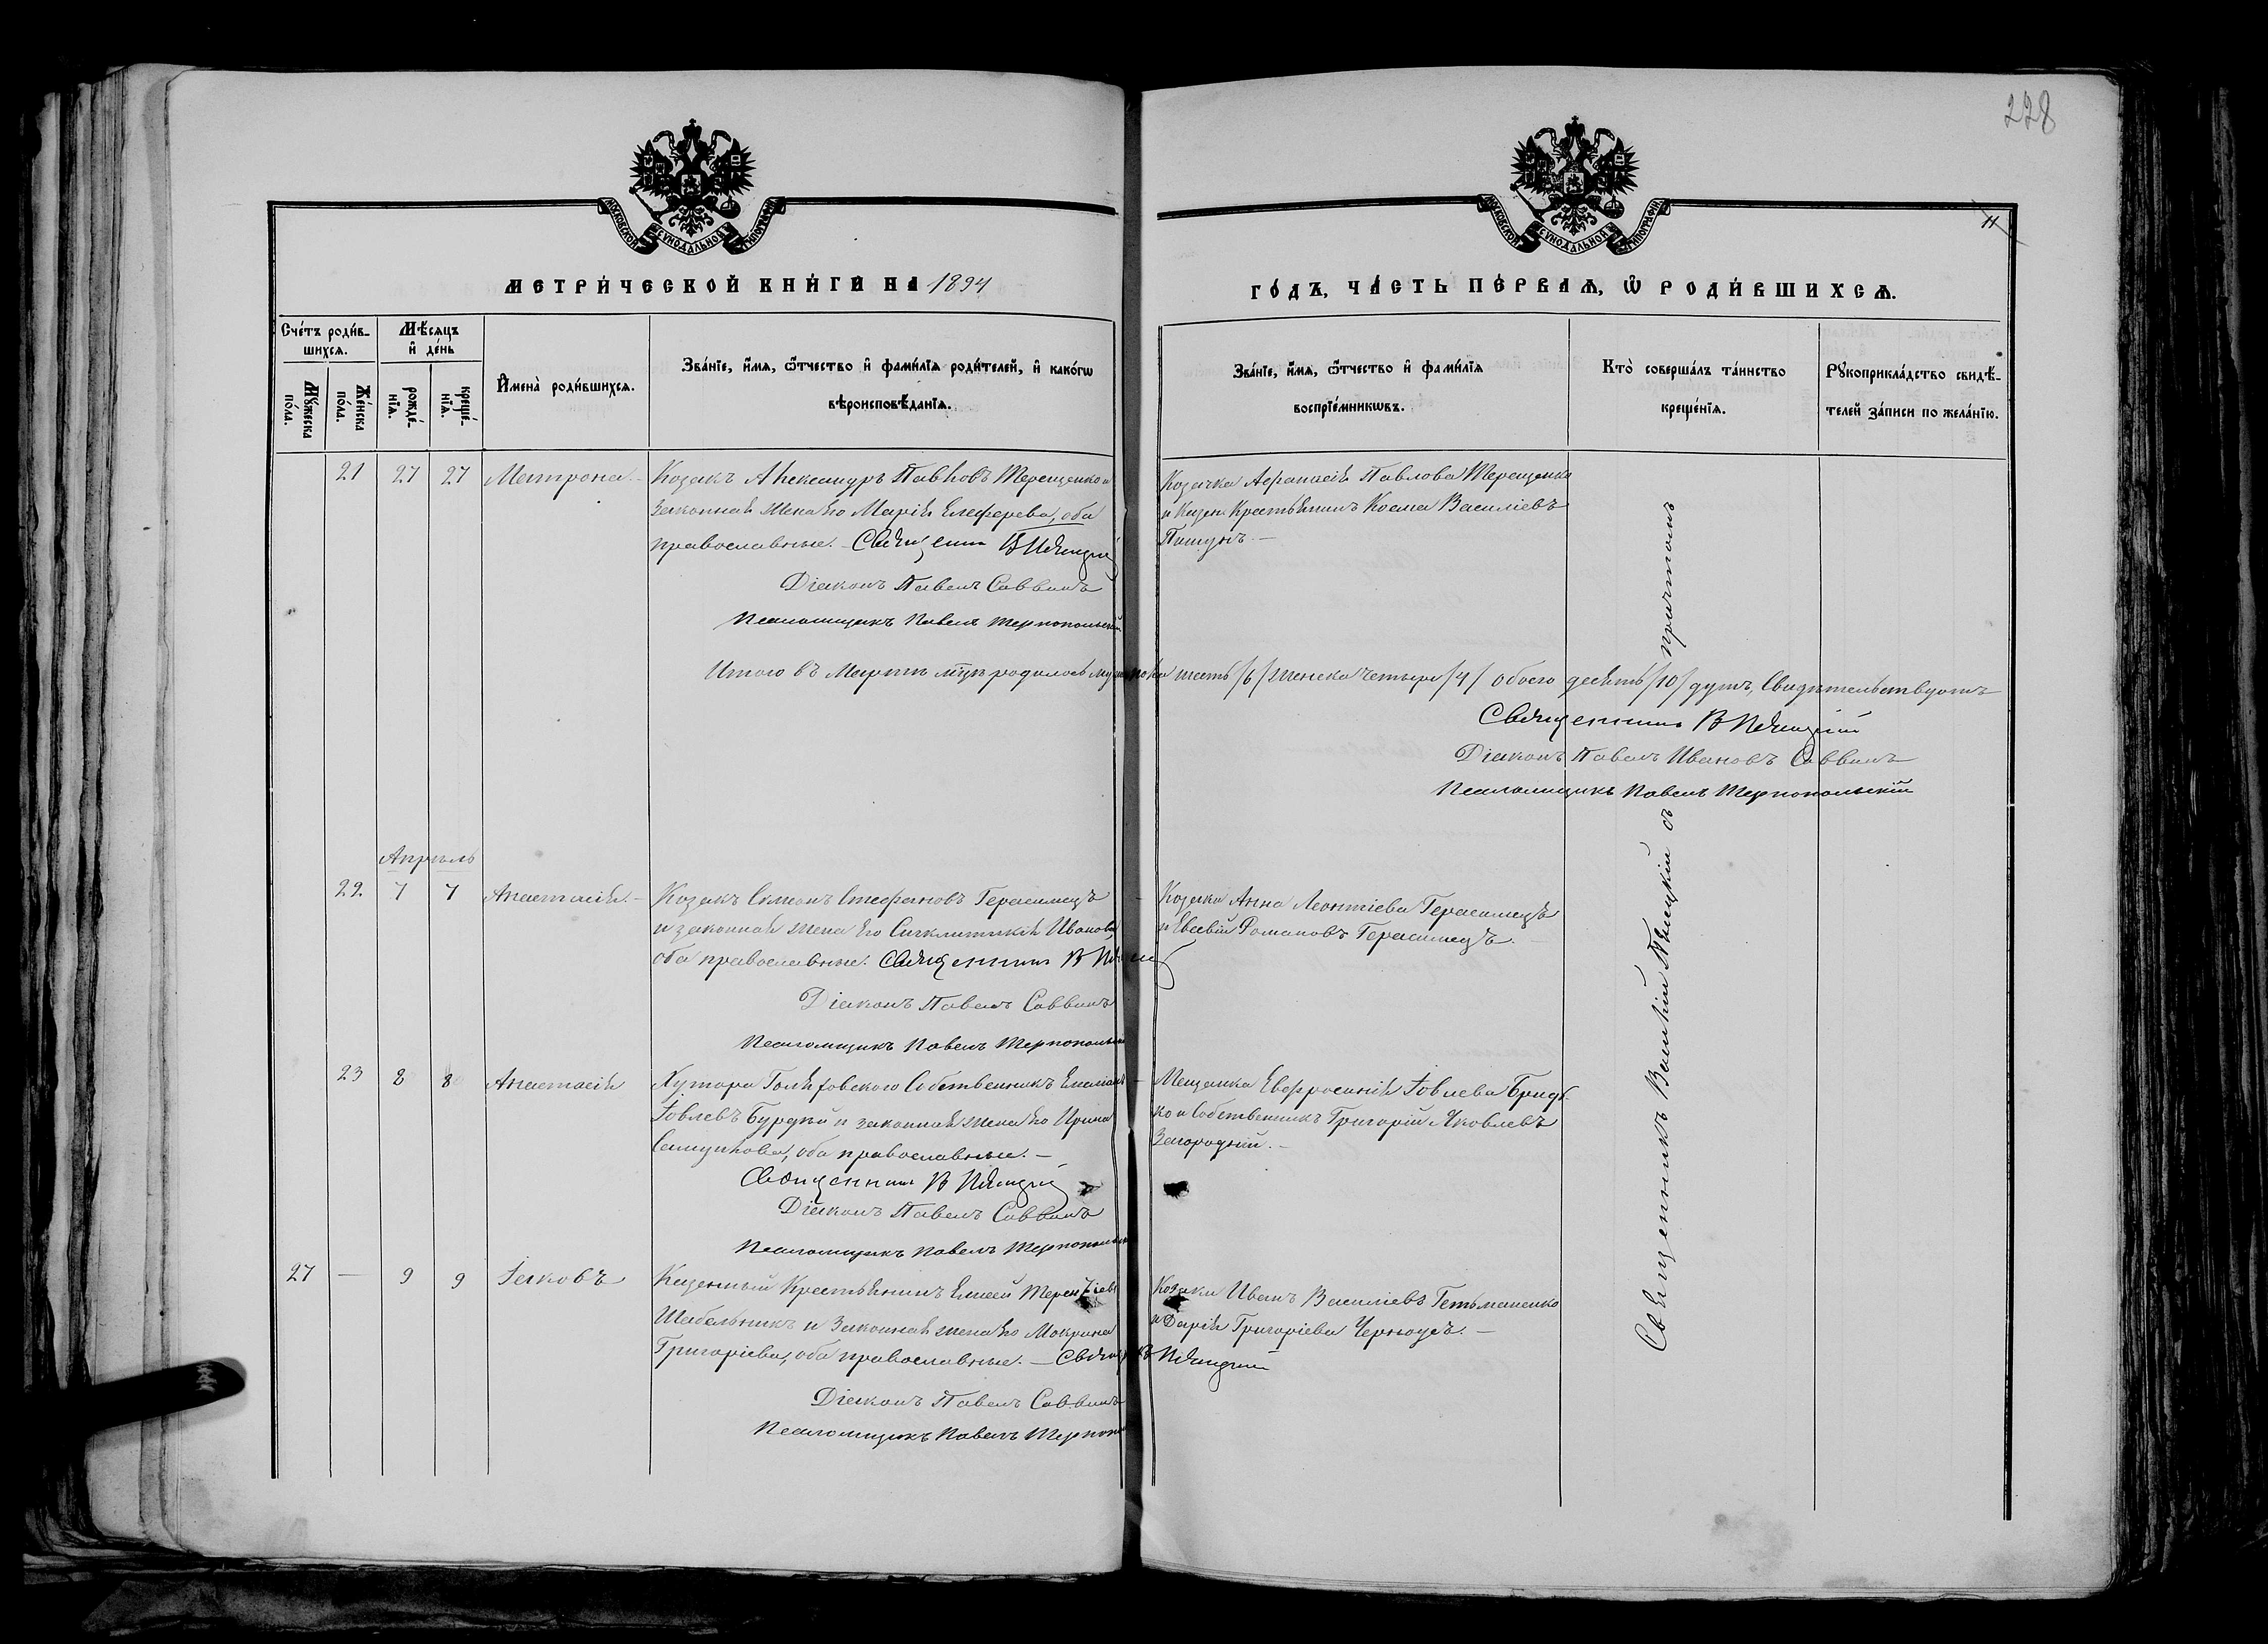 228
11
МОСКОВСКОЙ СѴНОДАЛЬНОЙ ТИПОГРАФІИ
МОСКОВСКОЙ СѴНОДАЛЬНОЙ ТИПОГРАФІИ
МЕТРИ́ЧЕСКОЙ КНИ́ГИ НА 1894
ГО́ДЪ, ЧА́СТЬ ПЕ́РВАѦ, Ѿ РОДИ́ВШИХСѦ.
Сче́тъ роди́в-
шихсѧ.
Мꙋ́жеска
по́ла.
Же́нска
по́ла.
Мѣ́сѧцъ
и҆ де́нь
рожде́-
нїѧ.
креще́-
нїѧ.
И҆мена̀ роди́вшихсѧ.
Зва́нїе, и҆́мѧ, ѻ҆́тчество и҆ фами́лїѧ роди́телей, и҆ како́гѡ
вѣроисповѣ́данїѧ.
Зва́нїе, и҆́мѧ, ѻ҆́тчество и҆ фами́лїѧ
воспрїе́мникѡвъ.
Кто̀ соверша́лъ та́инство
креще́нїѧ.
Рꙋкоприкла́дство свидѣ́-
телей за́писи по жела́нїю.
21 27 27 Матрона.
Козакъ Александръ Павловъ Терещенко и
законная жена его Марія Елеферева, оба
православные. Священникъ В Пѣницкій
Діаконъ Павелъ Саввинъ
Псаломщикъ Павелъ Тернопольскій
Козачка Афанасія Павлова Терещенко
и Казен. Крестьянинъ Косма Василіевъ
Итого въ Мартѣ мцѣ родилось мужеска шесть /6/ женска четыре /4/ обоего десять /10/ душъ, Свидѣтельствуютъ
Священникъ В Пѣницкій
Діаконъ Павелъ Ивановъ Саввинъ
Псаломщикъ Павелъ Тернопольскій
Апрѣль
22 7 7 Анастасія.
Козакъ Симеонъ Стефановъ Герасимецъ
и законная жена его Синклитикія Иванова
оба православные. Священникъ В Пѣницкій
Діаконъ Павелъ Саввинъ
Псаломщикъ Павелъ Тернопольскій
Козачка Анна Леонтіева Герасимецъ
и Евсевій Романовъ Герасимецъ.
23 8 8 Анастасія
Хутора Собственникъ
Іовлевъ и законная жена его Ирина
Самуилова, оба православные.
Священникъ В Пѣницкій
Діаконъ Павелъ Саввинъ
Псаломщикъ Павелъ Тернопольскій
Мещанка Евфросинія Іовлева
и Собственникъ Григорій Яковлевъ
Загородній.
27 — 9 9 Іаковъ
Казенный Крестьянинъ Елисей Терентіевъ
Шабельникъ и законная жена его Мокрина
Григоріева, оба православные. — Священникъ В Пѣницкій
Діаконъ Павелъ Саввинъ
Псаломщикъ Павелъ Тернопол
Козаки Иванъ Василіевъ Гетьманенко
и Дарія Григоріева Черноусъ.
Священникъ Василій Пѣницкій съ причтомъ